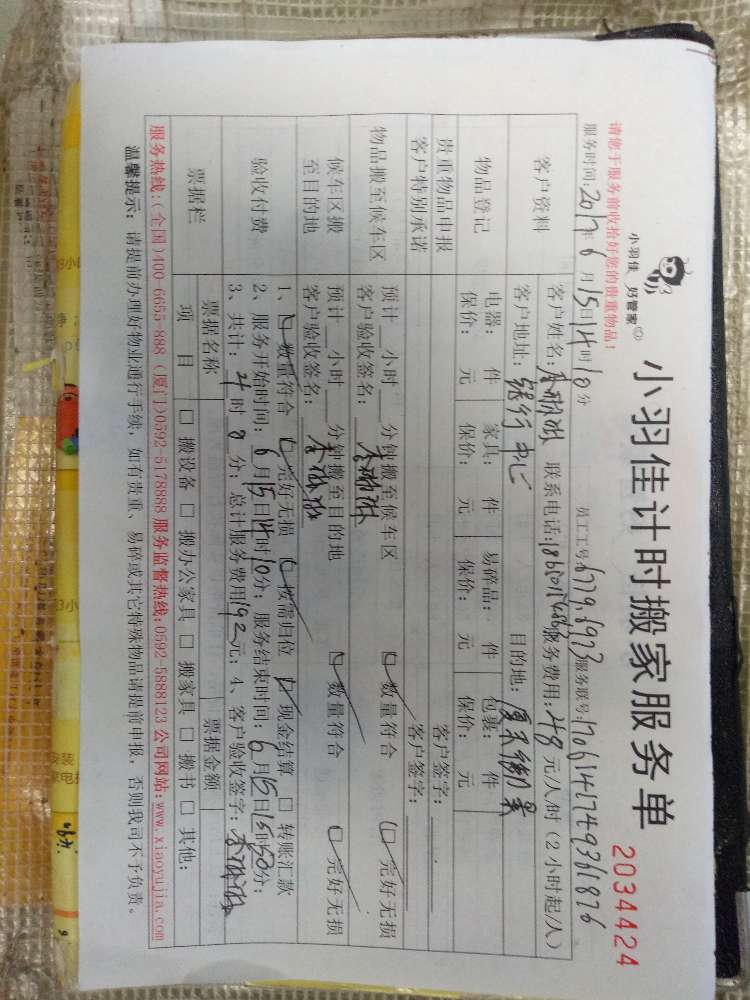 小羽佳 好管家
小羽佳计时搬家服务单
2034424
请您于服务前收拾好您的贵重物品!
服务时间:2017年6月15日14时10分 员工工号:6779.6973 服务联号:
客户资料
客户姓名: 联系电话: 服务费用:48元/人/时(2小时起/人)
客户地址:银行中心 目的地:
物品登记
电器: 件 家具: 件 易碎品: 件 包裹: 件
保价: 元 保价: 元 保价: 元 保价: 元
贵重物品申报 客户签字:
客户特别承诺 客户签字:
物品搬至候车区
预计 小时 分钟搬至候车区 □数量符合 □完好无损
客户验收签名:
候车区搬至目的地
预计 小时 分钟搬至目的地 □数量符合 □完好无损
客户验收签名:
验收付费
1、□数量符合 □完好无损 □按需归位 □现金结算 □转账汇款
2、服务开始时间:6月15日14时10分;服务结束时间:6月15日15时50分;
3、共计:4时0分;总计服务费用192元;4、客户验收签字:
票据栏
票据名称 票据金额
项目 □搬设备 □搬办公家具 □搬家具 □搬书 □其他:
服务热线:(全国)400-6655-888 (厦门)0592-5178888 服务监督热线:0592-5888123 公司网站:www.xiaoyujia.com
温馨提示:请提前办理好物业通行手续,如有贵重、易碎或其它特殊物品请提前申报,否则我司不予负责。